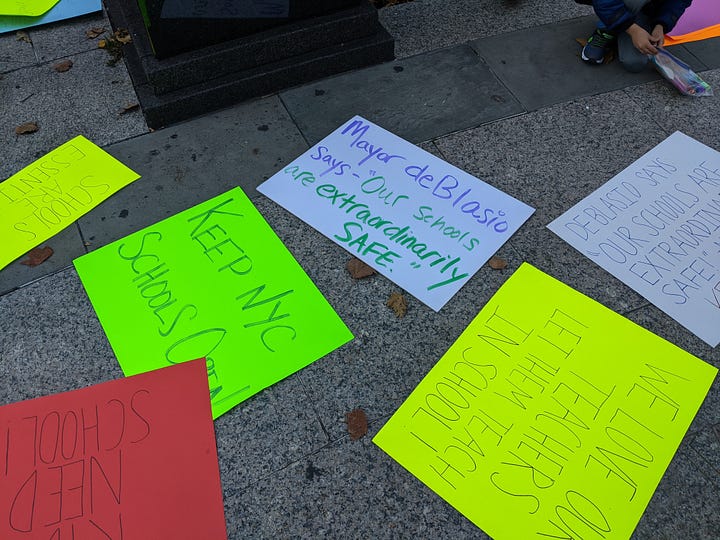 SCHOOLS
ARE
ESSENT
KEEP NYC
SCHOOLS OPEN
Mayor deBlasio
says - "Our schools
are extraordinarily
SAFE."
DEBLASIO SAYS
"OUR SCHOOLS ARE
EXTRAORDIN
SAFE"
NEED
SCHOOL!
WE LOVE OUR
TEACHERS
LET THEM TEACH
IN SCHOOL!